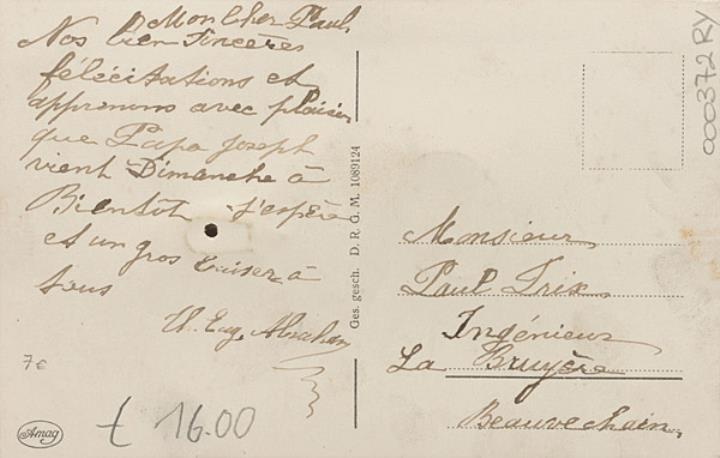 Mon Cher Paul,
Nos bien sincères
félécitations et
apprenons avec plaisir
que Papa Joseph
vient Dimanche à
Bientôt j'espère
et un gros baiser à
tous
Eug. Abraham
7€
Amag
£ 16.00
Ges. gesch. D. R. G. M. 1089124
000372 RY
Monsieur
Paul Trix
Ingénieur
La Bruyère
Beauvechain